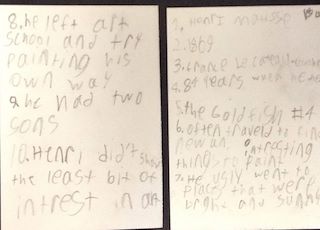 8.he left art
school and try
painting his
own way
9.he had two
sons
10.Henri did't show
the least bit of
intrest in art
1. Henri matisse
2.1869
3.france
4.84 years when he
5.the Goldfish #4
6.often traveld to find
new an intresting
things to paint
7.He usly went to
places that werf
bright and sunny